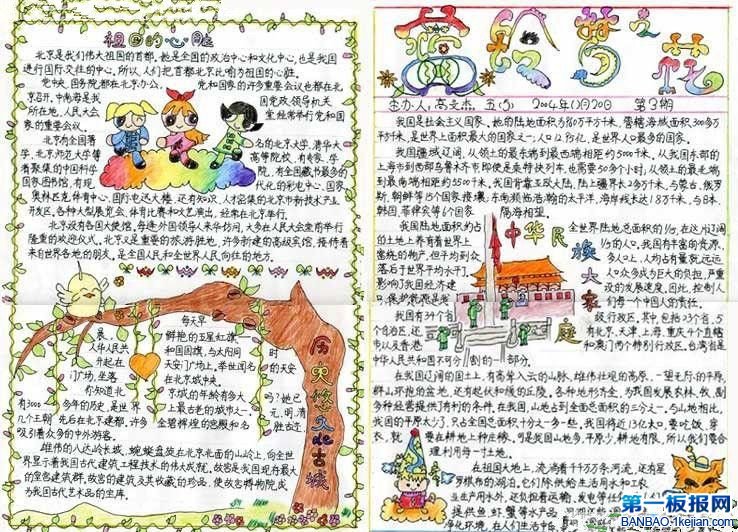 祖国的心脏
北京是我们伟大祖国的首都,她是全国的政治中心和文化中心,也是我
进行国际交往的中心。所以,人们把首都北京比喻为祖国的心脏。
党中央、国务院都在北京办公,党和国家的许多重要会议也都在北
京召开。中南海是我国党政领导机关
所在地,人民大会堂经常举行党和国
家的重要会议。
北京有全国著名的北京大学、清华大
学、北京师范大学等高等院校,有专家、学
者聚集的中国科学院、有全国藏书最多的
国家图书馆,有现代化的彩电中心、国家
奥林匹克体育中心、国际电话大楼,还有知识、人才密集的北京市新技术产业
开发区。各种大型展览会、体育比赛和文艺演出,经常在北京举行。
北京设有各国大使馆。每逢外国领导人来华访问,大多在人民大会堂前举行
隆重的欢迎仪式。北京又是重要的旅游胜地,许多新建的高级宾馆,接待着
来自世界各地的朋友,是全国人民和全世界人民向往的地方。
每天早
晨,鲜艳的五星红旗
人华人民共和国国旗,与太阳同时
升起在天安门广场上。举世闻名的天安
门广场,坐落在北京城中央。
你知道北京城的年龄有多大吗?她已
有3000多年的历史,是世界上最古老的城市之一。元、明、清
几个王朝先后在北建都,许多金碧辉煌的宫殿和名胜古迹,
吸引着众多的中外游客。
雄伟的八达岭长城,蜿蜒盘旋在北京北面的山岭上,向全世
界显示着我国古代建筑工程技术的伟大成就。故宫是我国现存最大
的皇宫建筑群,故宫的建筑及其收藏的珍品,使故宫博物院成
为我国古代艺术品的宝库。
历史悠久de古城
蓓蕾梦之花
主办人:高文杰 五(5) 2004年11月20日 第3期
我国是社会主义国家,她的陆地面积为960万平方千米,管辖海域面积300多万
平方千米,是世界上面积最大的国家之一;人口12.95亿,是世界人口最多的国家。
我国疆域辽阔,从领土的最东端到最西端相距约5000千米。从我国东部的
上海市到西部乌鲁木齐市即使是乘特快列车,也需要50多个小时;从领土的最北端
到最南端相距约5500千米。我国背靠亚欧大陆,陆上疆界长2.2万多千米,与蒙古、俄罗
斯、朝鲜等15个国家接壤,东南频临浩瀚的太平洋,海岸线长达1.8万多千米,与日本、
韩国、菲律宾等6个国家隔海相望。
我国陆地面积约占全世界陆地面积的1/15,在这片辽阔
的土地上养育着世界上1/5的人口。我国有丰富的资源,
富饶的物产,但平均到众多人口上,人均占有量就远远
落后于世界平均水平;人口众多成为巨大的负担,严重
影响了我国经济建设的发展速度。因此,控制人
口,保护资源是我们每个中国人的责任。
我国有34个省级行政区,其中,包括23个省、5
个自治区、还有北京、天津、上海、重庆4个直辖
市以及香港和澳门两个特别行政区。台湾省是
中华人民共和国不可分割的一部分。
中华民族大家庭
在我国辽阔的国土上,有高耸入云的山脉,雄伟壮观的高原,一望无际的平原,
群山环抱的盆地,还有起伏和缓的丘陵。各种地形齐全,为我国发展农、林、牧、副
多种经营提供了有利的条件。在我国,山地占到全国总面积的三分之一。与山地相比,
我国的平原太少了,只占全国总面积十分之一多一些。我国将近13亿末口,要吃饭,穿
衣,就要在耕地上种庄稼。可是我国山地多,平原少,耕地有限。所以我们要合
理利用每一寸土地。
在祖国大地上,流淌着千千万万条河流,还有星
罗棋布的湖泊。它们你供给生活用水和工农
业生产用水外,还负担着运输、发电等任务。
提供鱼、虾、蟹等水产品
净化环境。在人们生活中
第一板报网
BANBAO.1kejian.com